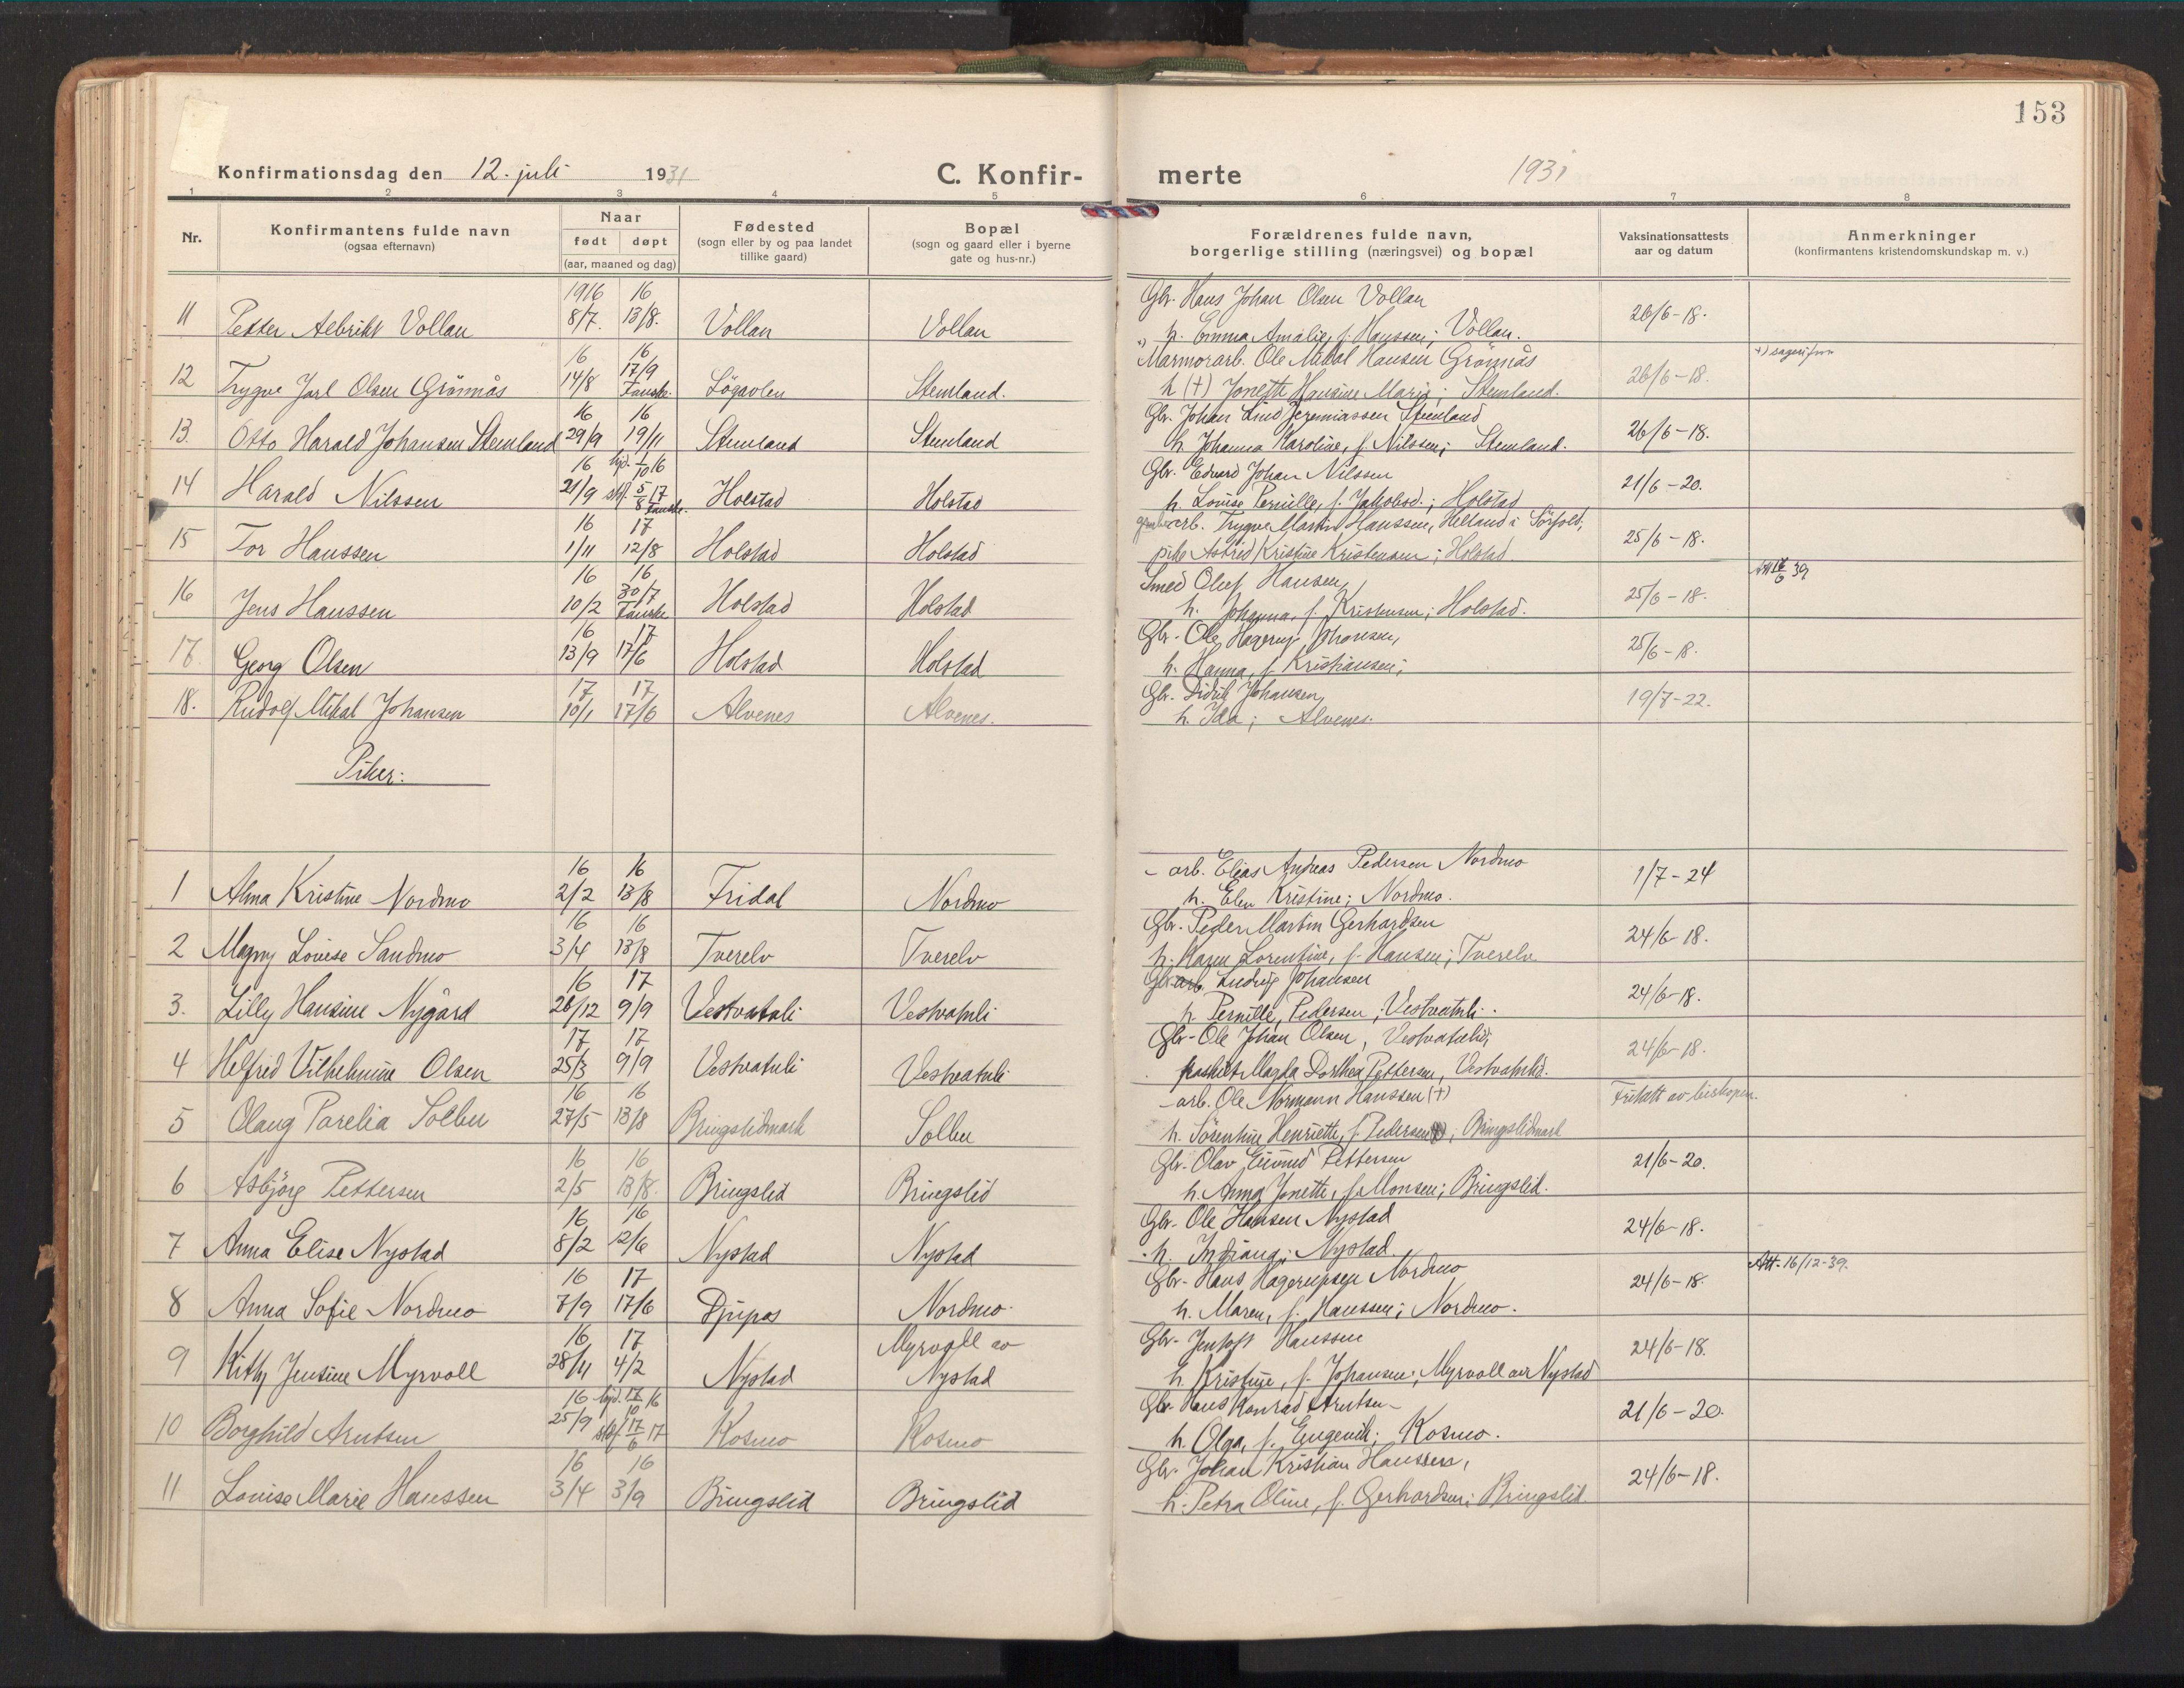 153
Konfirmationsdag den 12. juli 1931 C. Konfir-merte 1931
1 2 3 4 5 6 7 8
Nr. Konfirmantens fulde navn (ogsaa efternavn) Naar født døpt (aar, maaned og dag) Fødested (sogn eller by og paa landet tillike gaard) Bopæl (sogn og gaard eller i byerne gate og hus-nr.) Forældrenes fulde navn, borgerlige stilling (næringsvei) og bopæl Vaksinationsattests aar og datum Anmerkninger (konfirmantens kristendomskundskap m. v.)
1916 16 Gbr. Hans Johan Olsen Vollan
11 Petter Aebrikt Vollan 8/7. 13/8. Vollan Vollan h. Emma Amalie, f. Hanssen; Vollan. 26/6-18.
16 16 Marmorarb. Ole Mikal Hansen Grönnås
12 Trygve Jarl Olsen Grönnås 14/8 17/9 Fauske. Lögavlen Stemland. h (+) Jonette Hansine Marie; Stemland. 26/6-18.
16 16 Gbr. Johan Lind Jeremiassen Stemland
13. Otto Harald Johansen Stemland 29/9 19/11 Stemland Stemland h. Johanna Karoline, f. Nilssen; Stemland. 26/6-18.
16 hjd. 1/10 16 Gbr. Edvard Johan Nilssen
14 Harald Nilssen 21/9 stf. 5/8 17 Fauske. Holstad Holstad h. Louise Pernille, f. Jakobsd.; Holstad 21/6-20.
16 17 arb. Trygve Martin Hanssen, Helland i Sörfold,
15 Tor Hanssen 1/11 12/8 Holstad Holstad pike Astrid Kristine Kristensen; Holstad. 25/6-18.
16 16 Smed Oluf Hansen,
16 Jens Hanssen 10/2 30/7 Fauske Holstad Holstad h. Johanna, f. Kristensen; Holstad. 25/6-18.
16 17 Gbr. Ole Hagerup Johansen,
17. Georg Olsen 13/9 17/6 Holstad Holstad h. Hanna, f. Kristiansen; 25/6-18.
17 17 Gbr. Didrik Johansen,
18. Rudolf Mikal Johansen 10/1 17/6 Alvenes Alvenes. h. Ida; Alvenes. 19/7-22.
Piker:
16 16 - arb. Elias Andreas Pedersen Nordmo
1 Alma Kristine Nordmo 2/2 13/8 Fridal Nordmo h. Elen Kristine; Nordmo. 1/7-24
16 16 Gbr. Peder Martin Gerhardsen
2 Magny Louise Sandmo 3/4 13/8 Tverelv Tverelv h. Karen Lorentine, f. Hansen; Tverelv 24/6-18.
16 17 Gbr. arb. Ludvig Johansen
3. Lilly Hansine Nygård 26/12 9/9 Vestvatnli Vestvatnli h. Pernille, Pedersen; Vestvatnli. 24/6-18.
17 17 Gbr. Ole Johan Olsen, Vestvatnlid;
4 Helfrid Vilhelmine Olsen 25/3 9/9 Vestvatnli Vestvatnli Magda Dorthea Pettersen, Vestvatnlid. 24/6-18.
16 16 - arb. Ole Normann Hanssen (+)
5 Olaug Parelia Solbu 27/5 13/8 Bringslidmark Solbu h. Sörentine Henriette, f. Pedersen; Bringslidmark Fritatt av biskopen.
16 16 Gbr. Olav Eivind Pettersen
6 Asbjörg Pettersen 2/5 13/8. Bringslid Bringslid h. Anna Jonette, f. Monsen; Bringslid. 21/6-20.
16 16 Gbr. Ole Hansen Nystad
7 Anna Elise Nystad 8/2 12/6 Nystad Nystad h. Indiana; Nystad. 24/6-18.
16 17 Gbr. Hans Hagerupsen Nordmo
8 Anna Sofie Nordmo 7/9 17/6 Djupos Nordmo. h. Maren, f. Hanssen; Nordmo. 24/6-18. Att. 16/12-39.
16 17 Myrvoll av Gbr. Jentoft Hanssen
9 Kitty Jensine Myrvoll 28/11 4/2 Nystad Nystad h. Kristine, f. Johansen; Myrvoll av Nystad 24/6-18.
16 hjd. 17/10 16 Gbr. Hans Konrad Arntsen
10 Borghild Arntsen 25/9 stf. 17/6 17 Kosmo Kosmo h. Olga, f. Eugenik; Kosmo. 21/6-20.
16 16 Gbr. Johan Kristian Hanssen,
11 Louise Marie Hanssen 3/4 3/9 Bringslid Bringslid h. Petra Oline, f. Gerhardsen; Bringslid. 24/6-18.